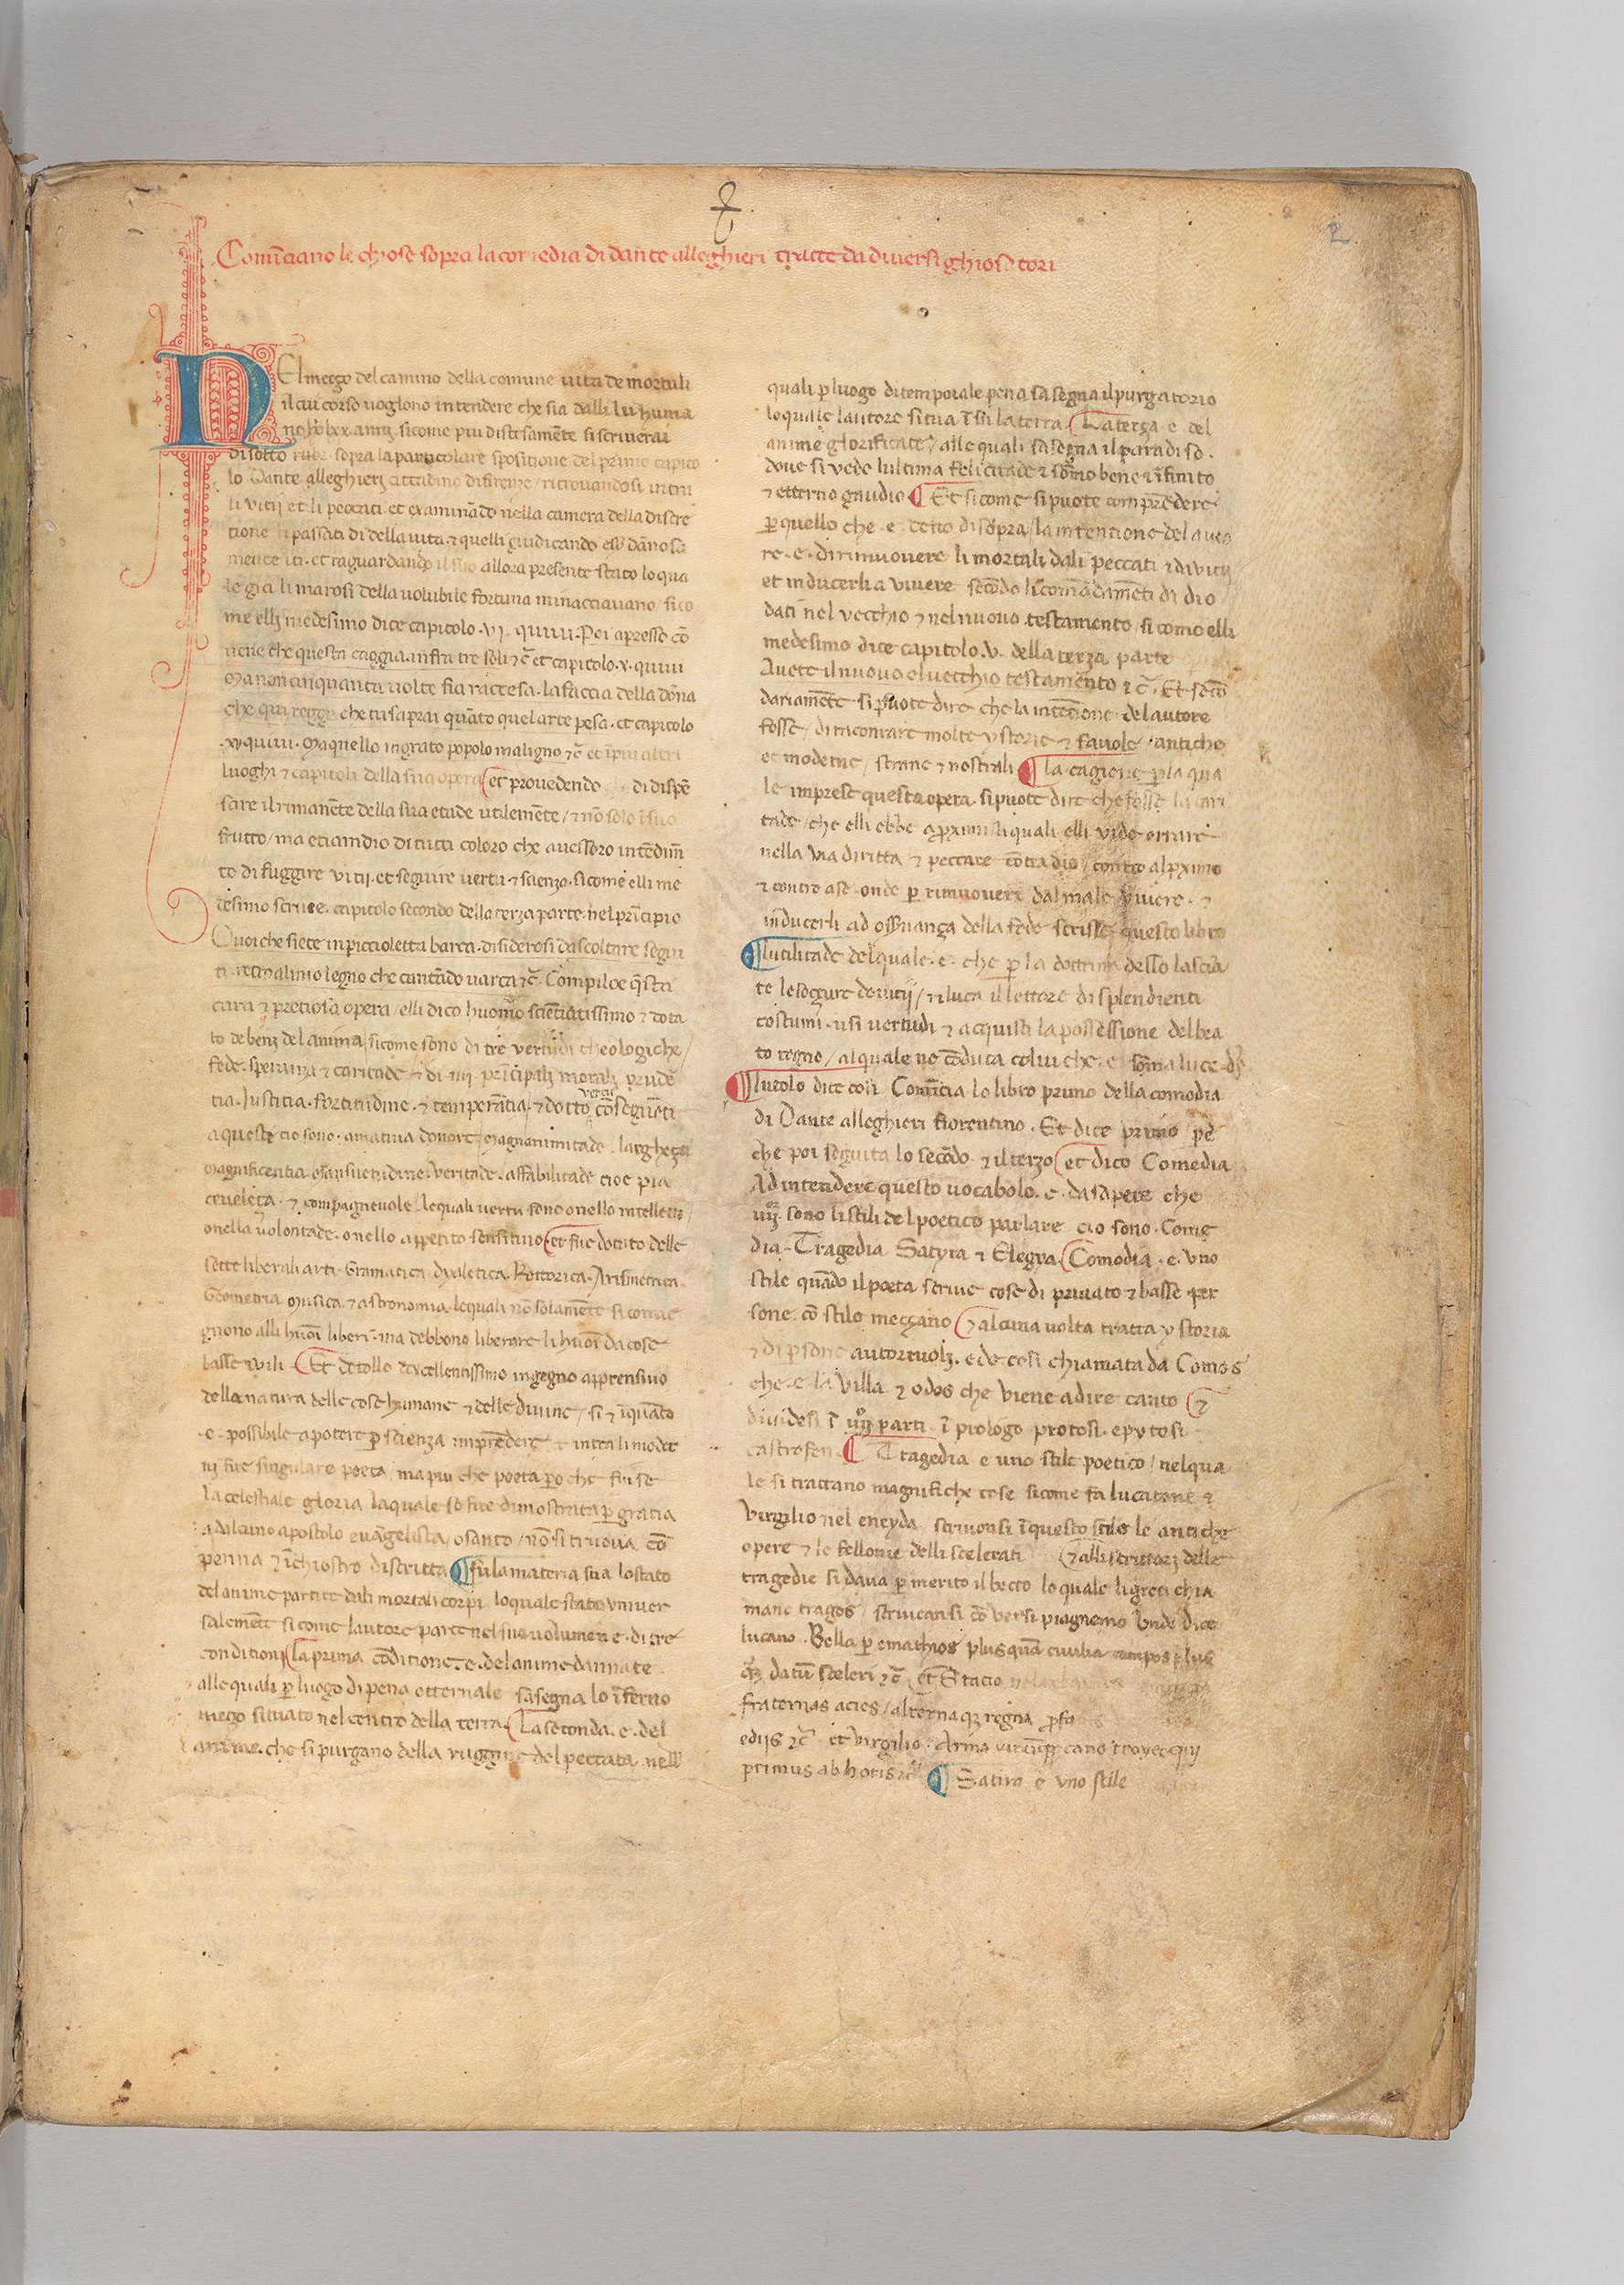 2
Comīciano le chiose sopra la comedia di dante alleghieri tracte da diversi ghiosatori
NEl meçço del camino della comune vita de mortali
il cui corso voglono intendere che sia dalli lu huma
anni sicome piu distesamēte si scriverai
di sotto sopra la particolare spositione del primo capito
lo Dante alleghieri cittadino di firenze / ritrovandosi intra
li vitij et li peccati et examinādo nella camera della discre
tione li passati di della vita ⁊ quelli giudicando essē dānosa
mente iti et raguardando il suo allora presente stato lo qua
le gia li marosi della volubile fortuna minacciavano / sico
me elli medesimo dice capitolo .vj. Poi apresso cō
viene che questa caggia infra tre soli ⁊c̄ et capitolo .x.
Ma non cinquanta volte fia raccesa la faccia della dōna
che qui regge che tu saprai quāto quel arte pesa et capitolo
.xv. Ma quello ingrato popolo maligno ⁊c̄ et ī piu altri
luoghi ⁊ capitoli della sua opera et provedendo di dispē
sare il rimanēte della sua etade utilemēte / ⁊ nō solo ī suo
frutto / ma etiamdio di tutti coloro che avessoro intēdim̄
to di fuggire vitij et seguire vertu ⁊ scienza sicome elli me
desimo scrive capitolo secondo della terza parte nel prīcipio
O voi che siete in piccioletta barca disiderosi dascoltare segui
ti retro al mio legno che cantādo varca ⁊c̄ Compiloe q̄sta
cara ⁊ pretiosa opera / elli dico huomo sciētiatissimo ⁊ dota
to de beni del anima / sicome sono di tre vertudi theologiche /
fede speranza ⁊ caritade ⁊ di .iiij. prīcipali morali prudē
tia Justitia fortitudine ⁊ temperātia ⁊ dotto vertu cōseguēti
a queste cio sono amativa donore Magnanimitade largheça
Magnificentia Mansuetudine Veritade affabilitade cioe pia
ceveleça ⁊ compagnevole lequali vertu sono o nello intelletto /
o nella volontade o nello appetito sensitivo et fue dotato delle
sette liberali arti Gramatica Dyaletica Rettorica Arismetrica
Geometria Musica ⁊ astronomia lequali nō solamēte si conve
gnono alli huoī liberi ma debbono liberare li huoī da cose
basse ⁊ vili Et dotollo excellentissimo ingegno apprensivo
della natura delle cose humane ⁊ delle divine / si ⁊ īquāto
e possibile a potere p̄ scienza imprēdere intra li moder
ni fue singulare poeta ma piu che poeta p̄o che fuise
la celestiale gloria laquale se fue dimostrata p̄ gratia
ad alcuno apostolo evāgelista o santo / nō si truova cō
penna ⁊ īchiostro discritta ¶ fu la materia sua lo stato
del anime partite dali mortali corpi loquale stato univer
salemēte sicome lautore parte nel suo volume e di tre
conditioni La prima cōditione e del anime dannate
alle quali p̄ luogo di pena etternale sasegna lo īferno
meço situato nel centro della terra La seconda e del
anime che si purgano della ruggine del peccata nell
quali p̄ luogo di temporale pena sasegna il purgatorio
loquale lautore situa ī su la terra La terça e del
anime glorificate / alle quali sasegna il paradiso
dove si vede lultima felicitade ⁊ sōmo bene ⁊ īfinito
⁊ etterno gaudio ¶ Et sicome si puote comprēdere
p̄ quello che e detto di sopra / la intentione del auto
re e di rimuovere li mortali dali peccati ⁊ di vitij
et inducerli a vivere secōdo li comādamēti di dio
dati nel vecchio ⁊ nel nuovo testamento / si como elli
medesimo dice capitolo .v. della terza parte
Avete il nuovo el vecchio testamento ⁊c̄ Et secō
dariamēte si puote dire che la intētione del autore
fosse / di racontare molte ystorie ⁊ favole / antiche
et moderne / strane ⁊ nostrali ¶ La cagione p̄ la qua
le imprese questa opera si puote dire che fosse la cari
tade / che elli ebbe a p̄ximi liquali elli vide errare
nella via diritta ⁊ peccare cōtra dio / contro al p̄ximo
⁊ contro a se onde p̄ rimuovere dal male vivere ⁊
inducerli ad osservança della fede scrisse questo libro
¶ lutilitade del quale e che p̄ la dottrina desso lascia
te le de vitij / ⁊ luca il lettore di splendienti
costumi usi vertudi ⁊ acquisti la possessione del bea
to regno / al quale ne cōduca colui che e sōma luce
¶ lutolo dice cosi Comīcia lo libro primo della comodia
di Dante alleghieri fiorentino Et dice primo / pē
che poi seguita lo secōdo ⁊ il terzo et dico Comedia
Ad intendere questo vocabolo e da sapere che
iiij sono li stili del poetico parlare cio sono Come
dia Tragedia Satyra ⁊ Elegya Comodia e uno
stile quādo il poeta scrive cose di privato ⁊ basse per
sone cō stilo meççano ⁊ alcuna volta tratta ystoria
⁊ di p̄sone autorevoli ede cosi chiamata da Comos
che e la villa ⁊ odos che viene a dire canto ⁊
dividesi ī iiij parti ī prologo protosi epytosi
castrofen ¶ Tragedia e uno stile poetico / nel qua
le si trattano magnifiche cose sicome fa lucatone ⁊
Virgilio nel eneyda / scrivonsi ī questo stilo le antiche
opere ⁊ le fellonie delli scelerati ⁊ alli scrittori delle
tragedie si dava p̄ merito il becco lo quale li greci chia
mano tragos / scrivcansi cō versi piagnemo Unde dice
lucano Bella p̄ emathios plusquā civilia campos
datū sceleri ⁊c̄ et Statio
fraternas acies / alterna q̄ regna
edijs ⁊c̄ et virgilio Arma virūq̄ cano troye qui
primus ab horis ⁊c̄ ¶ Satira e uno stile